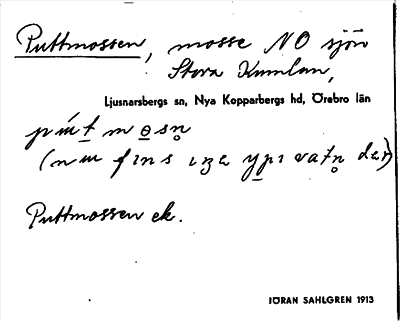 Puttmossen, mosse NO sjön
Stora Kumlan,
Ljusnarsbergs sn, Nya Kopparbergs hd, Örebro län
(nu fins ıŋa ypı vatn där)
Puttmossen ek.
JÖRAN SAHLGREN 1913